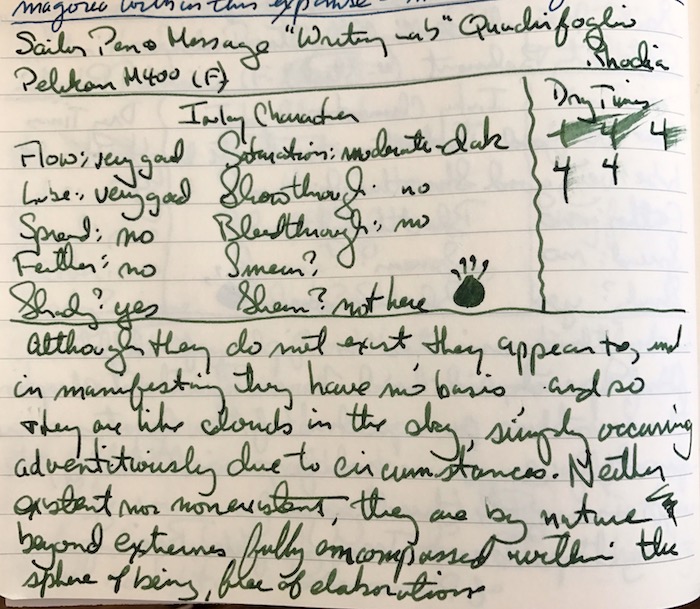 magoria within this expanse
Sailor Pen Message "Writing Lab" Quadrifoglio
Rhodia
Pelikan M400 (F)
Inky Characters
Dry Times
4 4 4
4 4
Flow: very good Saturation: moderate-dark
Lube: very good Showthrough: no
Spread: no Bleedthrough: no
Feather: no Smear?
Shady? yes Sheen? not here
Although they do not exist they appear to, and
in manifesting they have no basis and so
they are like clouds in the sky, simply occurring
adventitiously due to circumstances. Neither
existent nor nonexistent, they are by nature
beyond extremes fully encompassed within the
sphere of being, free of elaborations